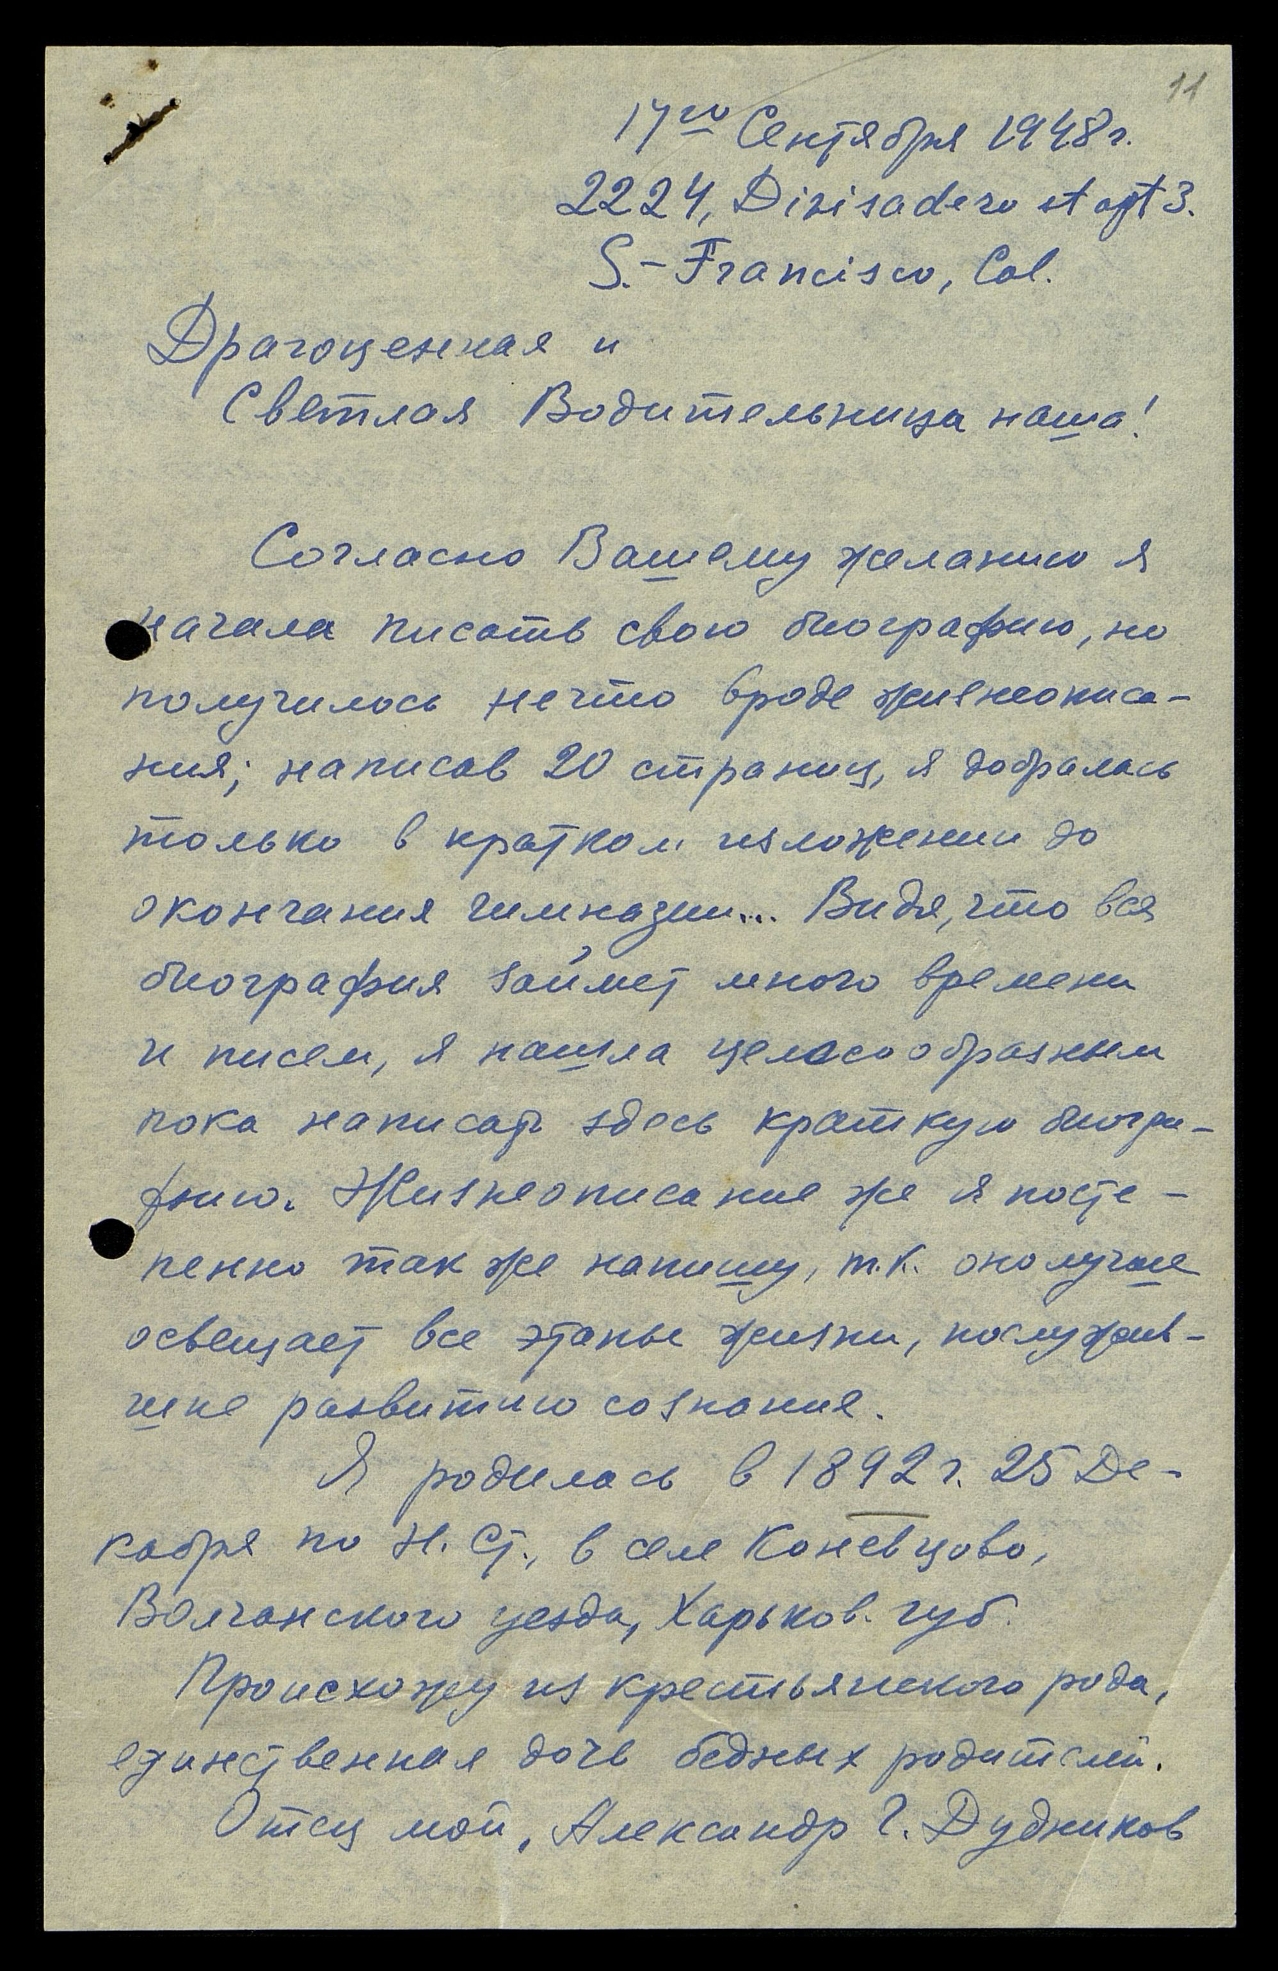 11
17го Сентября 1948 г.
2224, Divisadero st apt 3.
S.-Francisco, Cal.
Драгоценная и
Светлая Водительница наша!
Согласно Вашему желанию я
начала писать свою биографию, но
получилось нечто вроде жизнеописа-
ния; написав 20 страниц, я добралась
только в кратком изложении до
окончания гимназии... Видя, что вся
биография займет много времени
и писем, я нашла целесообразным
пока написать здесь краткую биогра-
фию. Жизнеописание же я посте-
пенно так же напишу, т.к. оно лучше
освещает все этапы жизни, послужив-
шие развитию сознания.
Я родилась в 1892 г. 25 Де-
кабря по Н. Ст., в селе Коневцово,
Волчанского уезда, Харьков. губ.
Происхожу из крестьянского рода,
единственная дочь бедных родителей.
Отец мой, Александр Г. Дудников